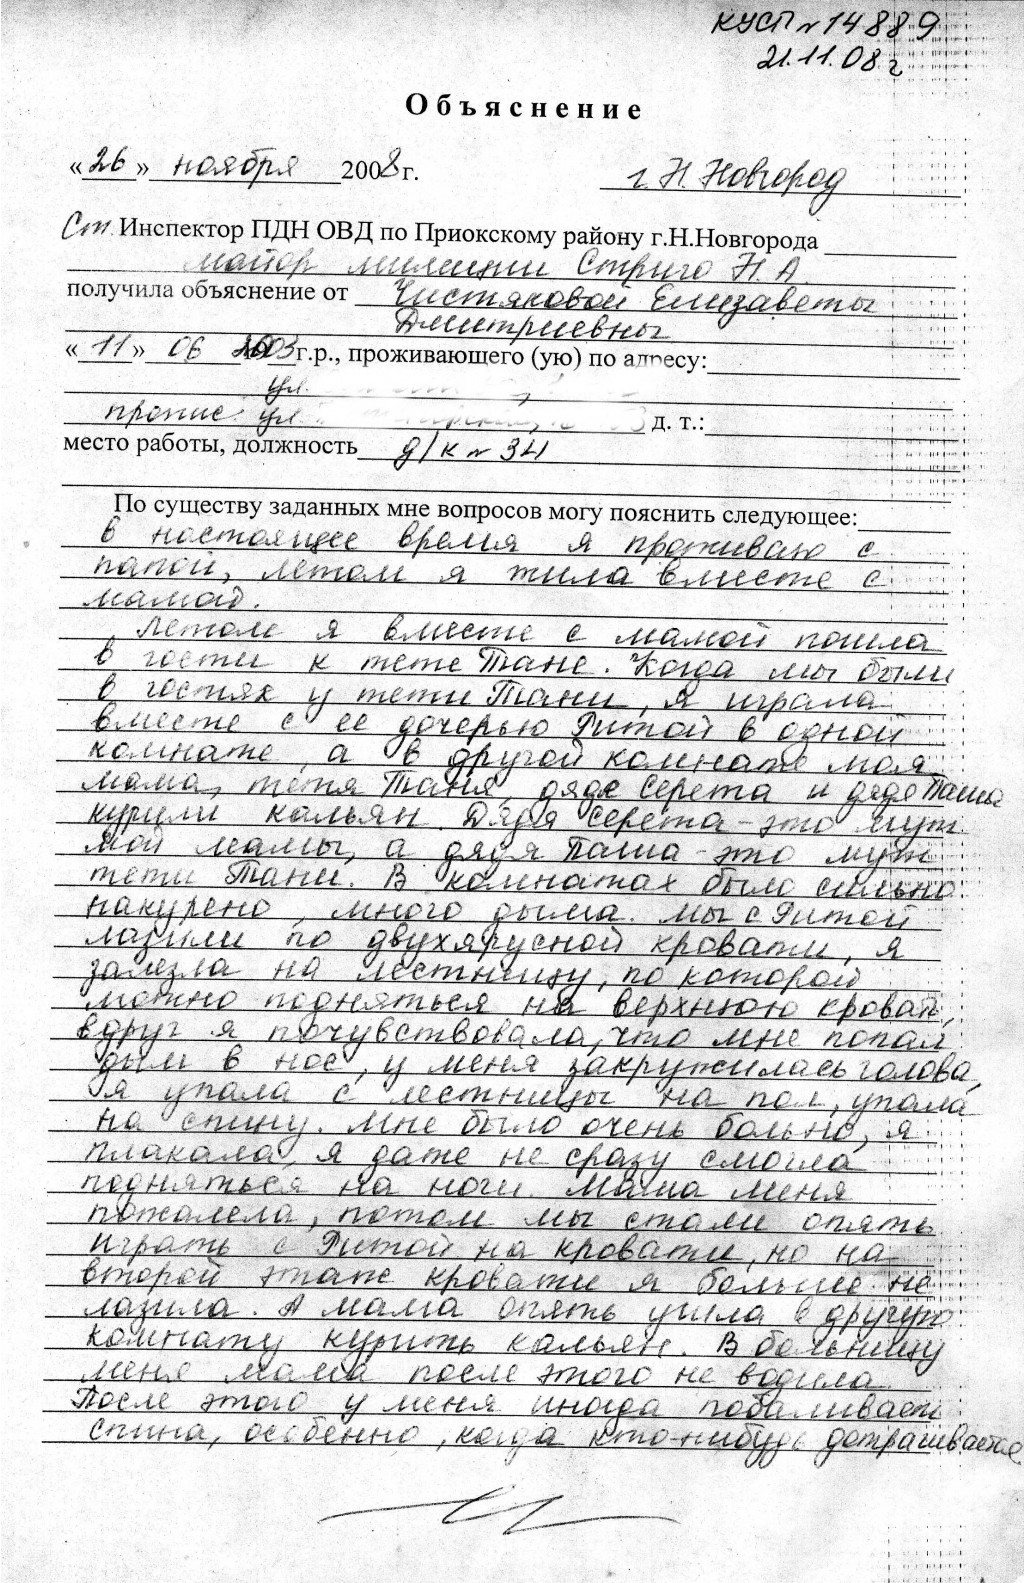 КУСП № 14889
21.11.08 г
Объяснение
«26» ноября 2008 г. г. Н. Новгород
Ст. Инспектор ПДН ОВД по Приокскому району г.Н.Новгорода
майор милиции Стриго Н.А.
получила объяснение от Чистяковой Елизаветы
Дмитриевны
«11» 06 2003 г.р., проживающего (ую) по адресу:
ул.
пропис. ул. д. т.:
место работы, должность д/к № 34
По существу заданных мне вопросов могу пояснить следующее:
в настоящее время я проживаю с
папой, летом я жила вместе с
мамой.
Летом я вместе с мамой пошла
в гости к тете Тане. Когда мы были
в гостях у тети Тани, я играла
вместе с ее дочерью Ритой в одной
комнате, а в другой комнате моя
мама, тетя Таня, дядя Сережа и дядя Паша
курили кальян. Дядя Сережа - это муж
мой мамы, а дядя Паша - это муж
тети Тани. В комнатах было сильно
накурено, много дыма. Мы с Ритой
лазили по двухярусной кровати, я
залезла на лестницу, по которой
можно подняться на верхнюю кровать,
вдруг я почувствовала, что мне попал
дым в нос, у меня закружилась голова,
я упала с лестницы на пол, упала
на спину. Мне было очень больно, я
плакала, я даже не сразу смогла
подняться на ноги. Мама меня
пожалела, потом мы стали опять
играть с Ритой на кровати, но на
второй этаж кровати я больше не
лазила. А мама опять ушла в другую
комнату курить кальян. В больницу
меня мама после этого не водила.
После этого у меня иногда побаливает
спина, особенно, когда кто-нибудь дотрагивается